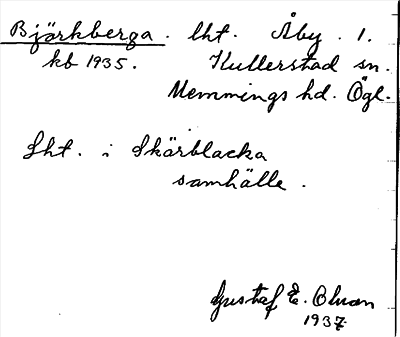 Björkberga. lht. Åby. 1.
kb 1935. Kullerstad sn.
Memmings hd. Ögl.
Lht. i Skärblacka
samhälle.
Gustaf E. Ohson
1937.